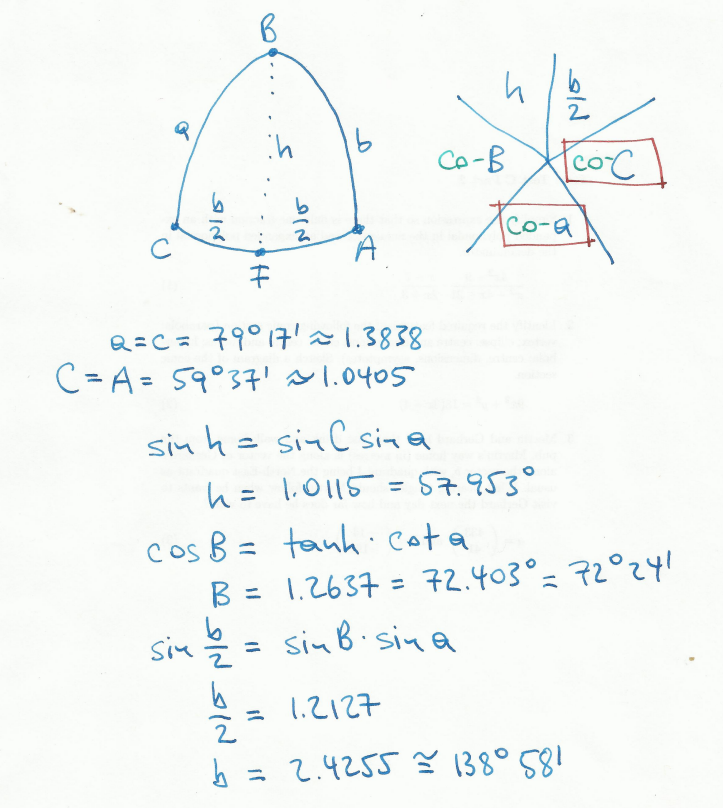 B
a
h
b
b/2
b/2
C
F
A
h
b/2
co-B
co-C
co-a
a = c = 79° 17' ≈ 1.3838
C = A = 59° 37' ≈ 1.0405
sin h = sin C sin a
h = 1.0115 = 57.953°
cos B = tan h · cot a
B = 1.2637 = 72.403° = 72° 24'
sin b/2 = sin B · sin a
b/2 = 1.2127
b = 2.4255 ≅ 138° 58'